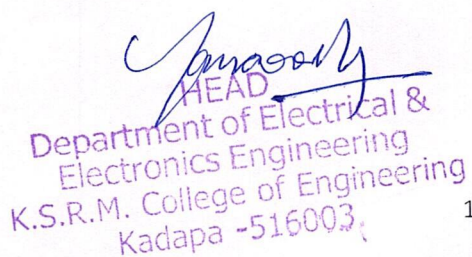 HEAD
Department of Electrical &
Electronics Engineering
K.S.R.M. College of Engineering
Kadapa -516003.
1